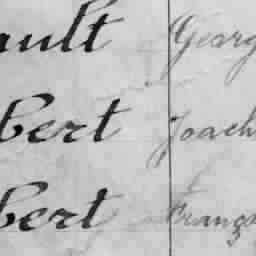 ault Georg
bert Joach
bert Franz